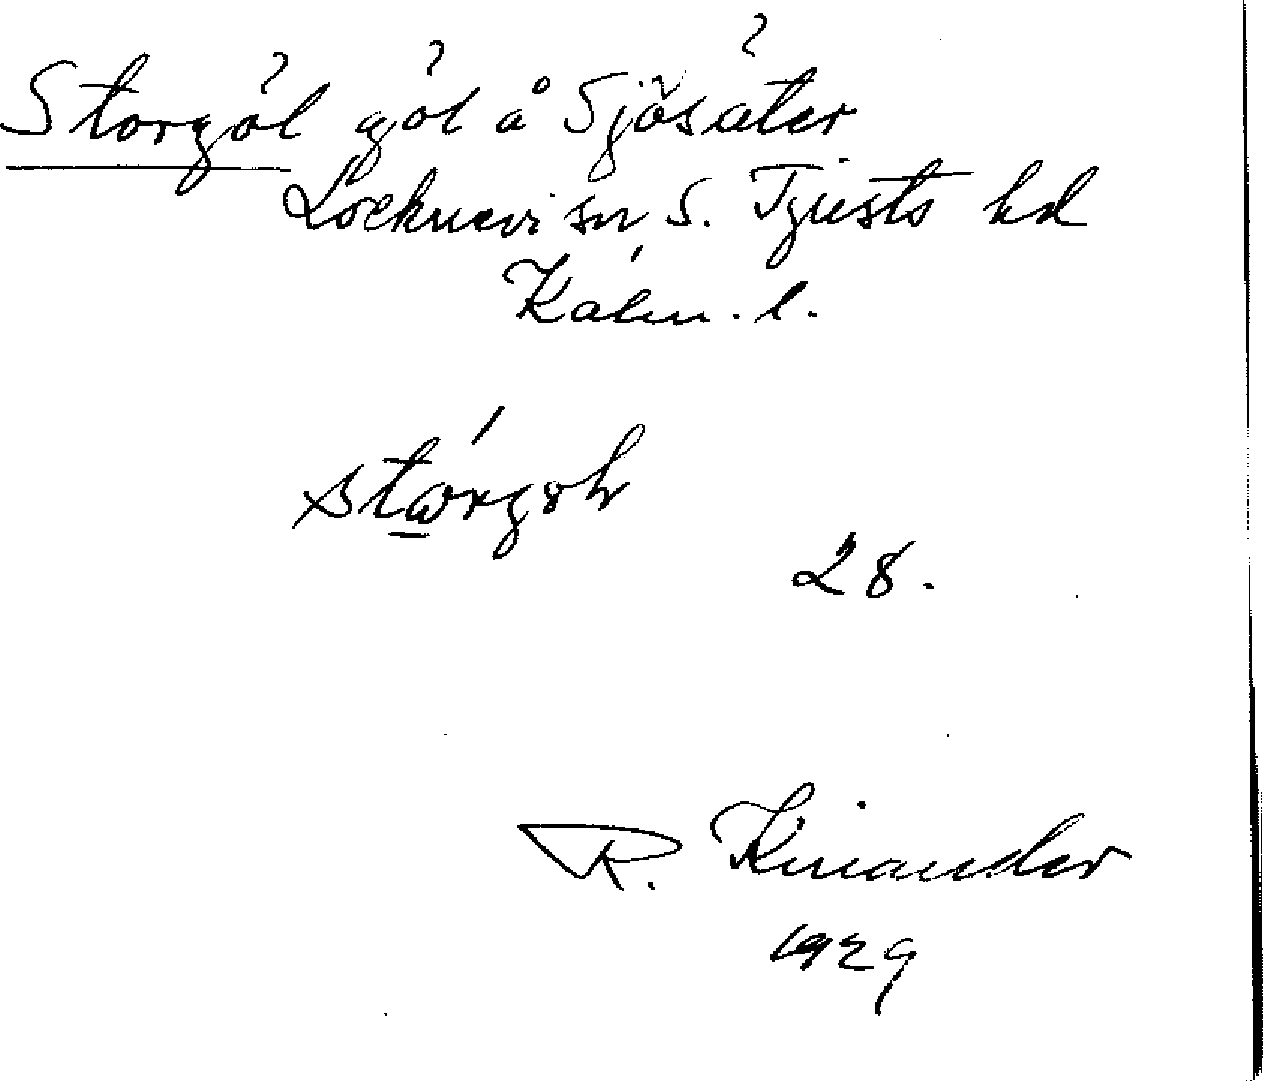 Storgöl göl å Sjösäter
Locknevi sn S. Tjusts hd
Kalm. l.
28.
R. Kinander
1929